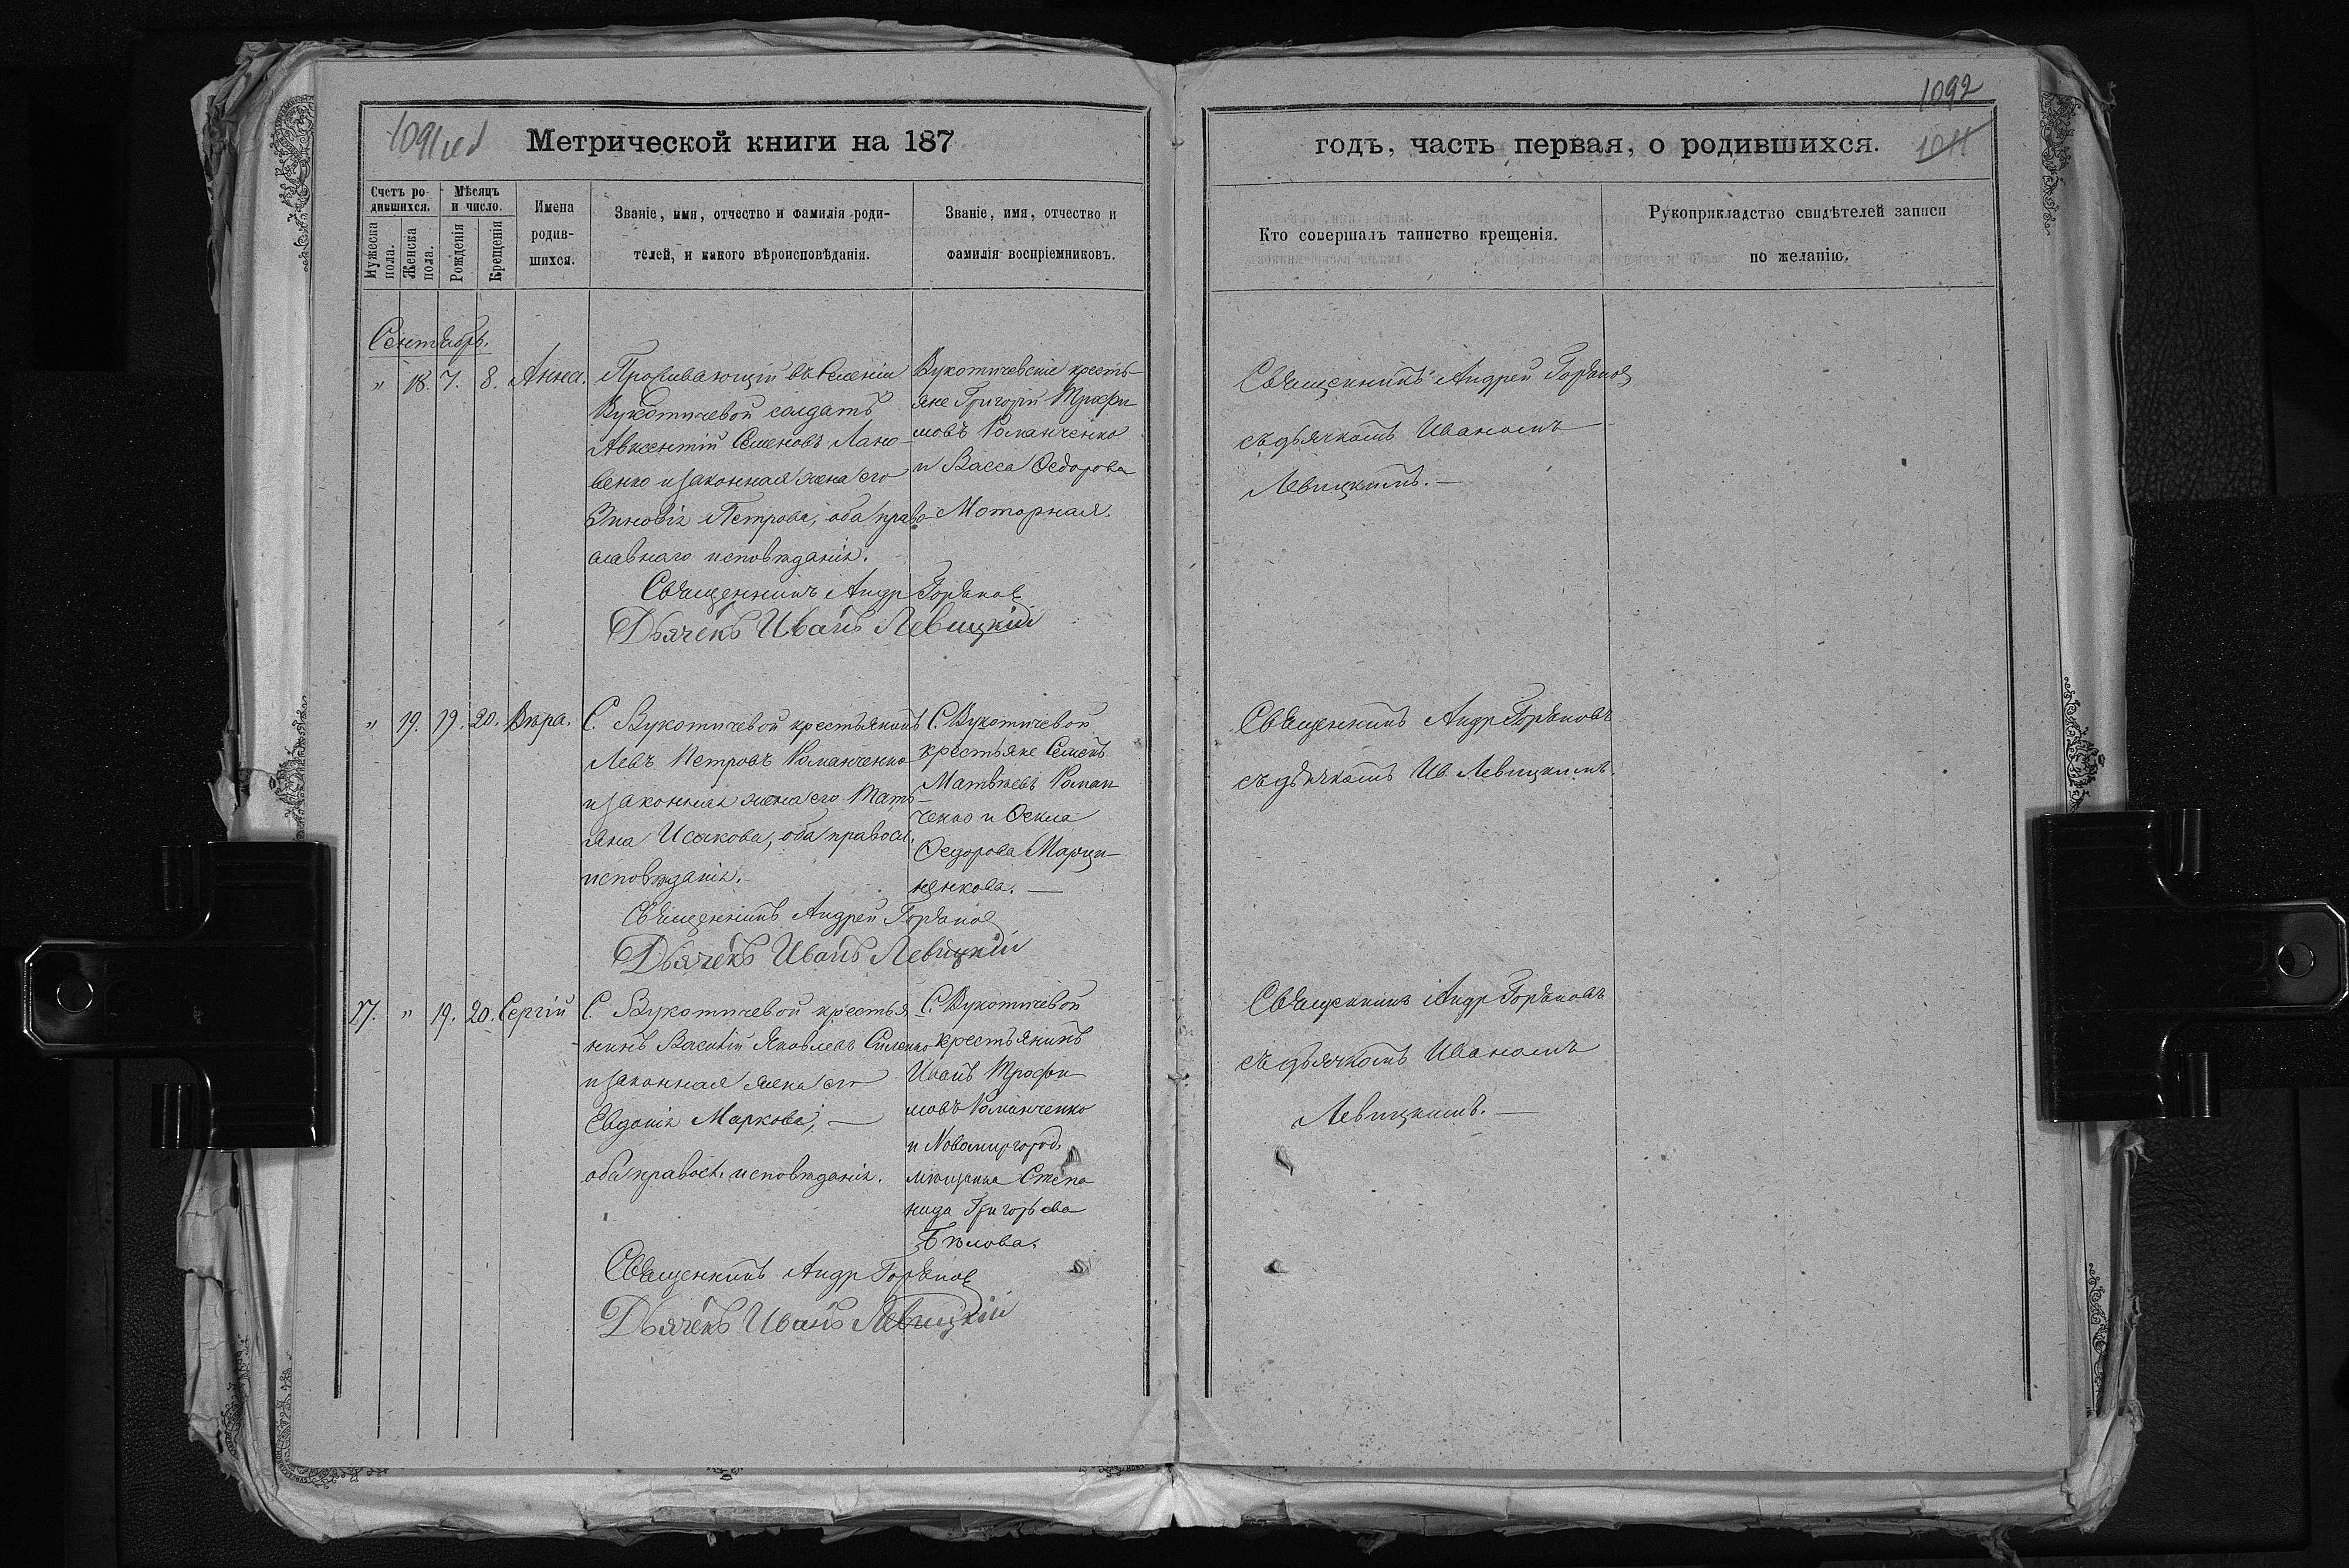 1091об
Метрической книги на 187
Счетъ ро-
дившихся.
Мѣсяцъ
и число.
Мужеска
пола.
Женска
пола.
Рожденія
Крещенія
Имена
родив-
шихся.
Званіе, имя, отчество и фамилія роди-
телей, и какого вѣроисповѣданія.
Званіе, имя, отчество и
фамилія воспріемниковъ.
Сентябрь.
" 18. 7. 8. Анна.
Проживающій въ селеніи
Вукотичевой солдатъ
Авксентій Семеновъ Лано-
венко и законная жена его
Зиновія Петрова, оба право-
славнаго исповѣданія.
Вукотичевскіе кресть-
яне Григорій Трофи
мовъ Романченко
и Васса Ѳедорова
Моторная.
Священникъ Андр
Дьячекъ Иванъ Левицкій
" 19. 19. 20. Вѣра.
С. Вукотичевой крестьянинъ
Левъ Петровъ Романченко
и законная жена его Тать-
яна Исакова, оба правосл.
исповѣданія.
С. Вукотичевой
крестьяне Семенъ
Матвѣевъ Роман
ченко и Ѳекла
Ѳедорова Марци-
ненкова. —
Священникъ Андрей
Дьячекъ Иванъ Левицкій
17. " 19. 20. Сергій
С. Вукотичевой крестья
нинъ Василій Яковлевъ Силенко
и законная жена его
Евдокія Маркова, —
оба правосл. исповѣданія.
С. Вукотичевой
крестьянинъ
Иванъ Трофи
мовъ Романченко
и Новомиргород.
мѣщанка Степа
нида Григорьева
Бѣлова.
Священникъ Андр
Дьячекъ Иванъ Левицкій
1092
1011
годъ, часть первая, о родившихся.
Кто совершалъ таинство крещенія.
Рукоприкладство свидѣтелей записи
по желанію.
Священникъ Андрей
съ дьячкомъ Иваномъ
Левицкимъ. —
Священникъ Андр
съ дьячкомъ Ив. Левицкимъ.
Священникъ Андр
съ дьячкомъ Иваномъ
Левицкимъ. —